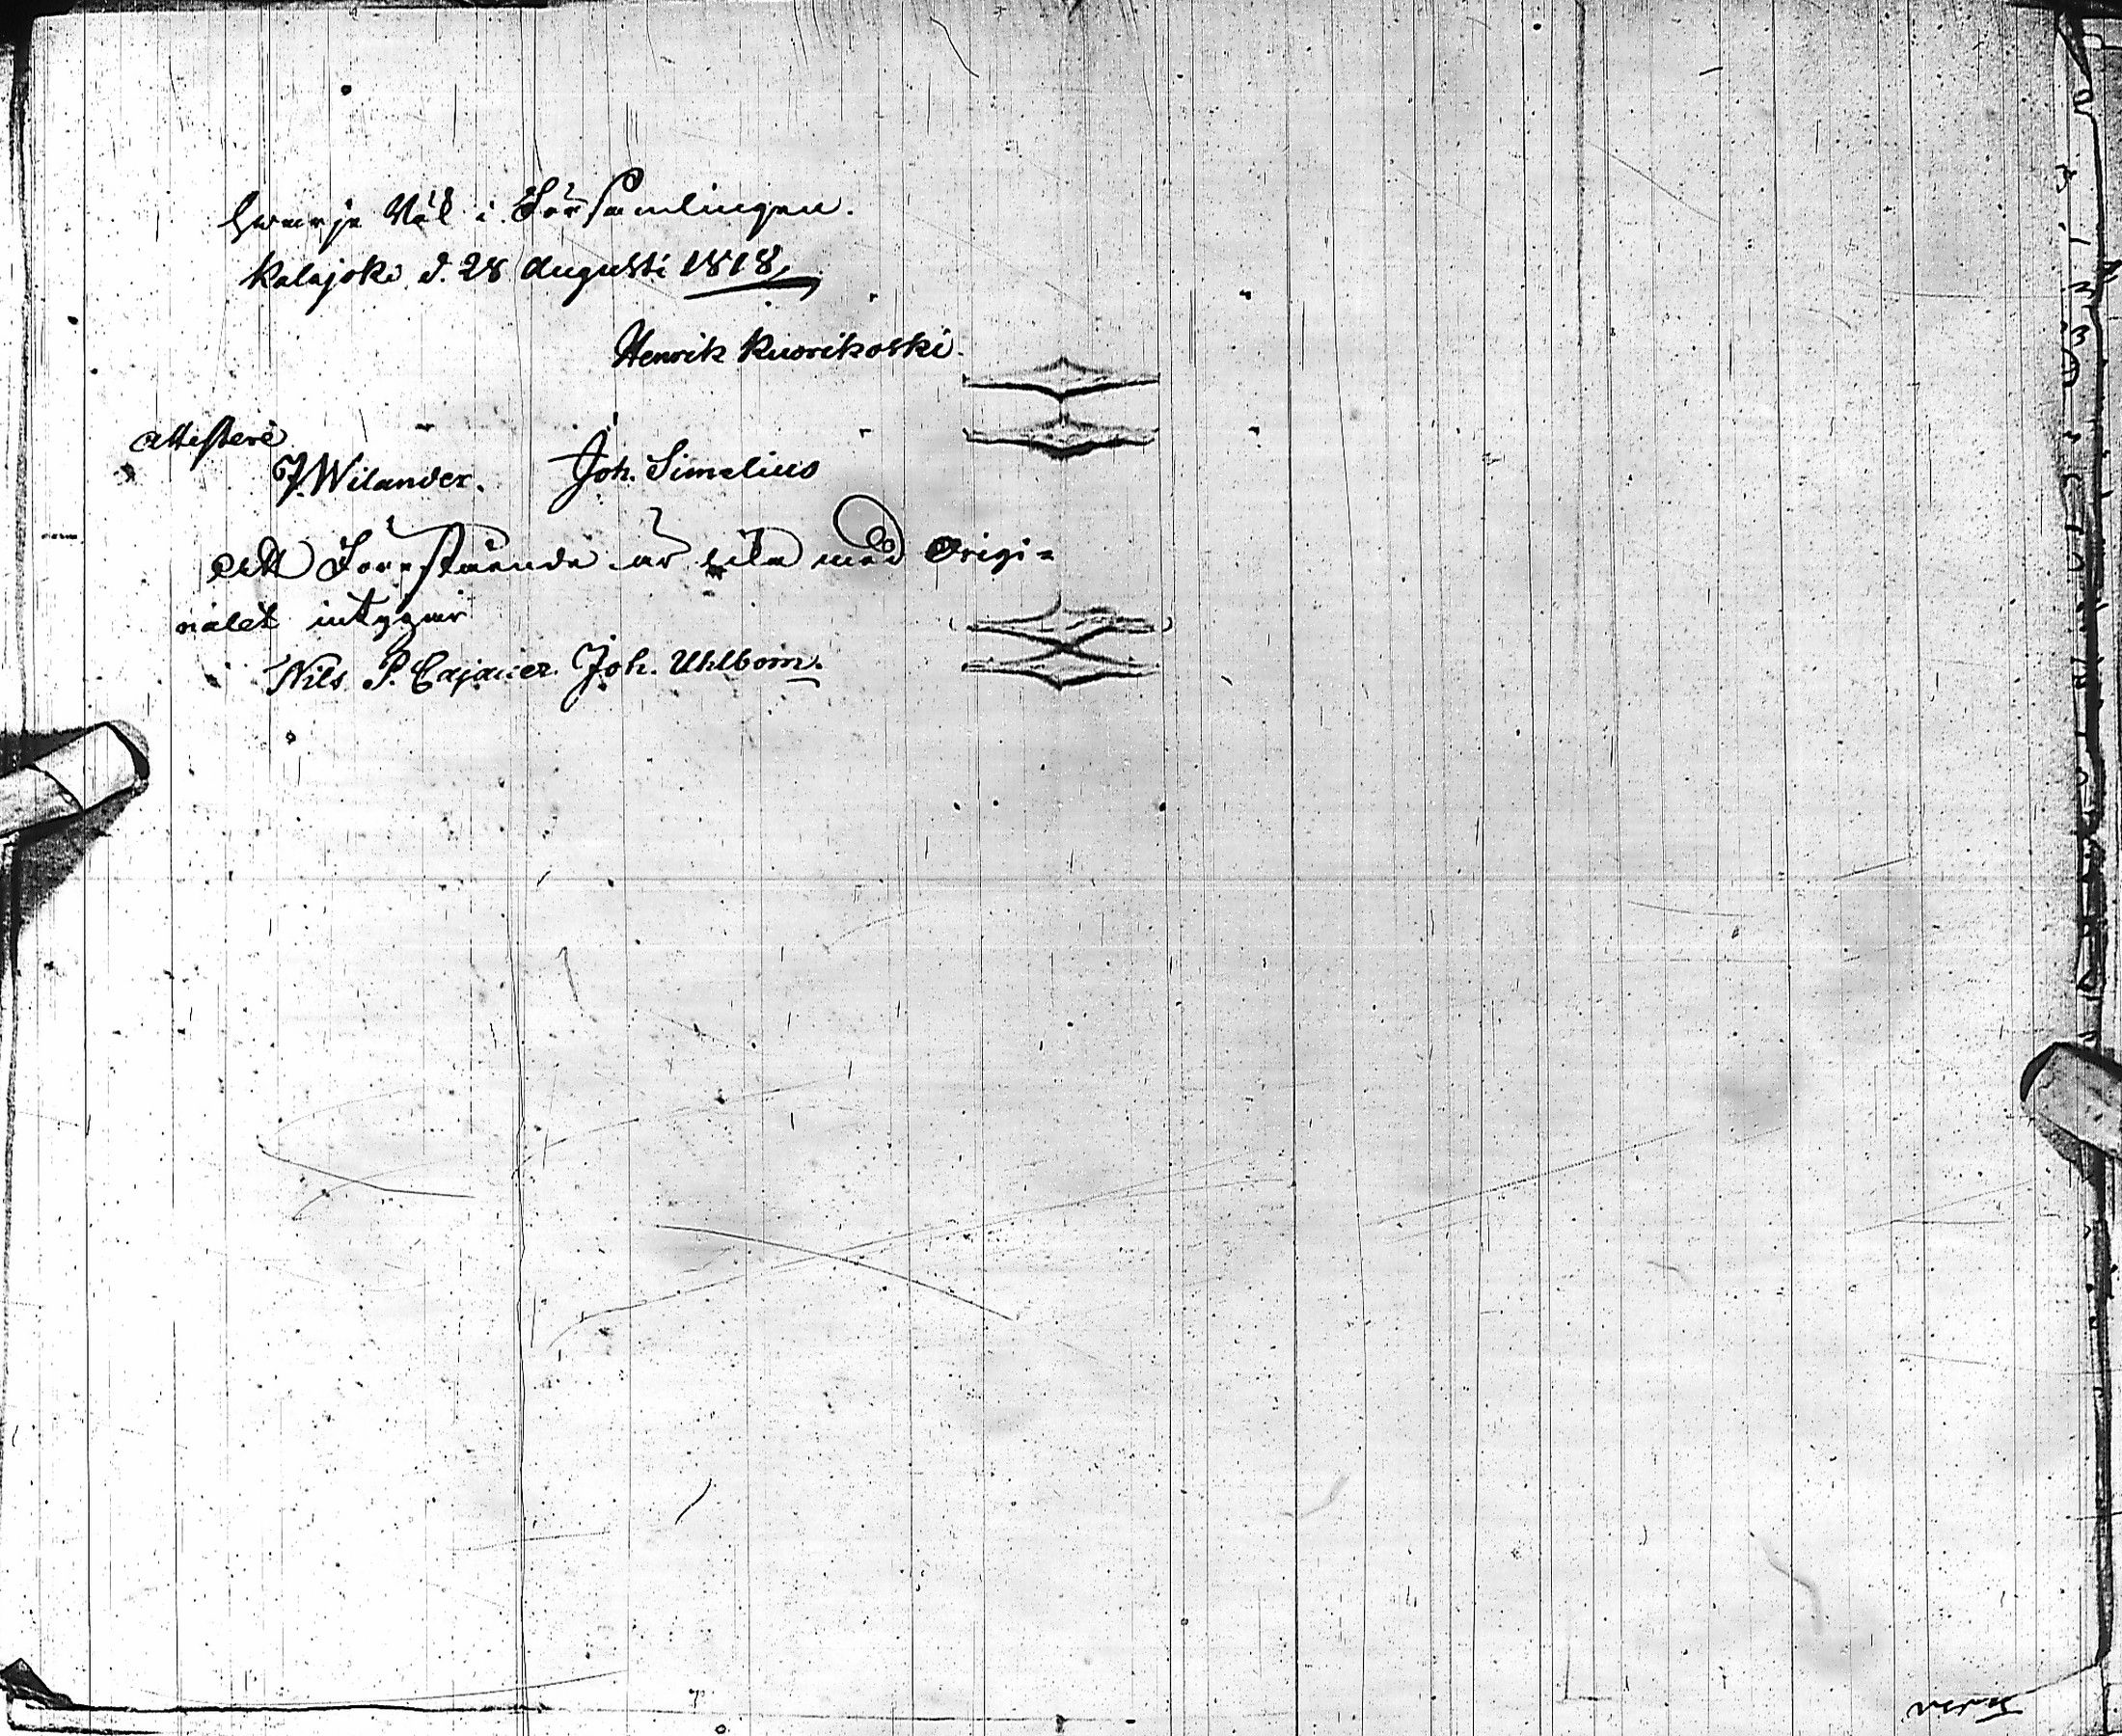 hwarje Rök i Församlingen.
Kalajoki d. 28 Augusti 1818,
Henrik Kuorikoski.
Attestera
J. Wilander. Joh. Simelius
Att Förestående är lika med Origi=
nalet intygar
Nils P. Cajaner. Joh. Uhlbom.